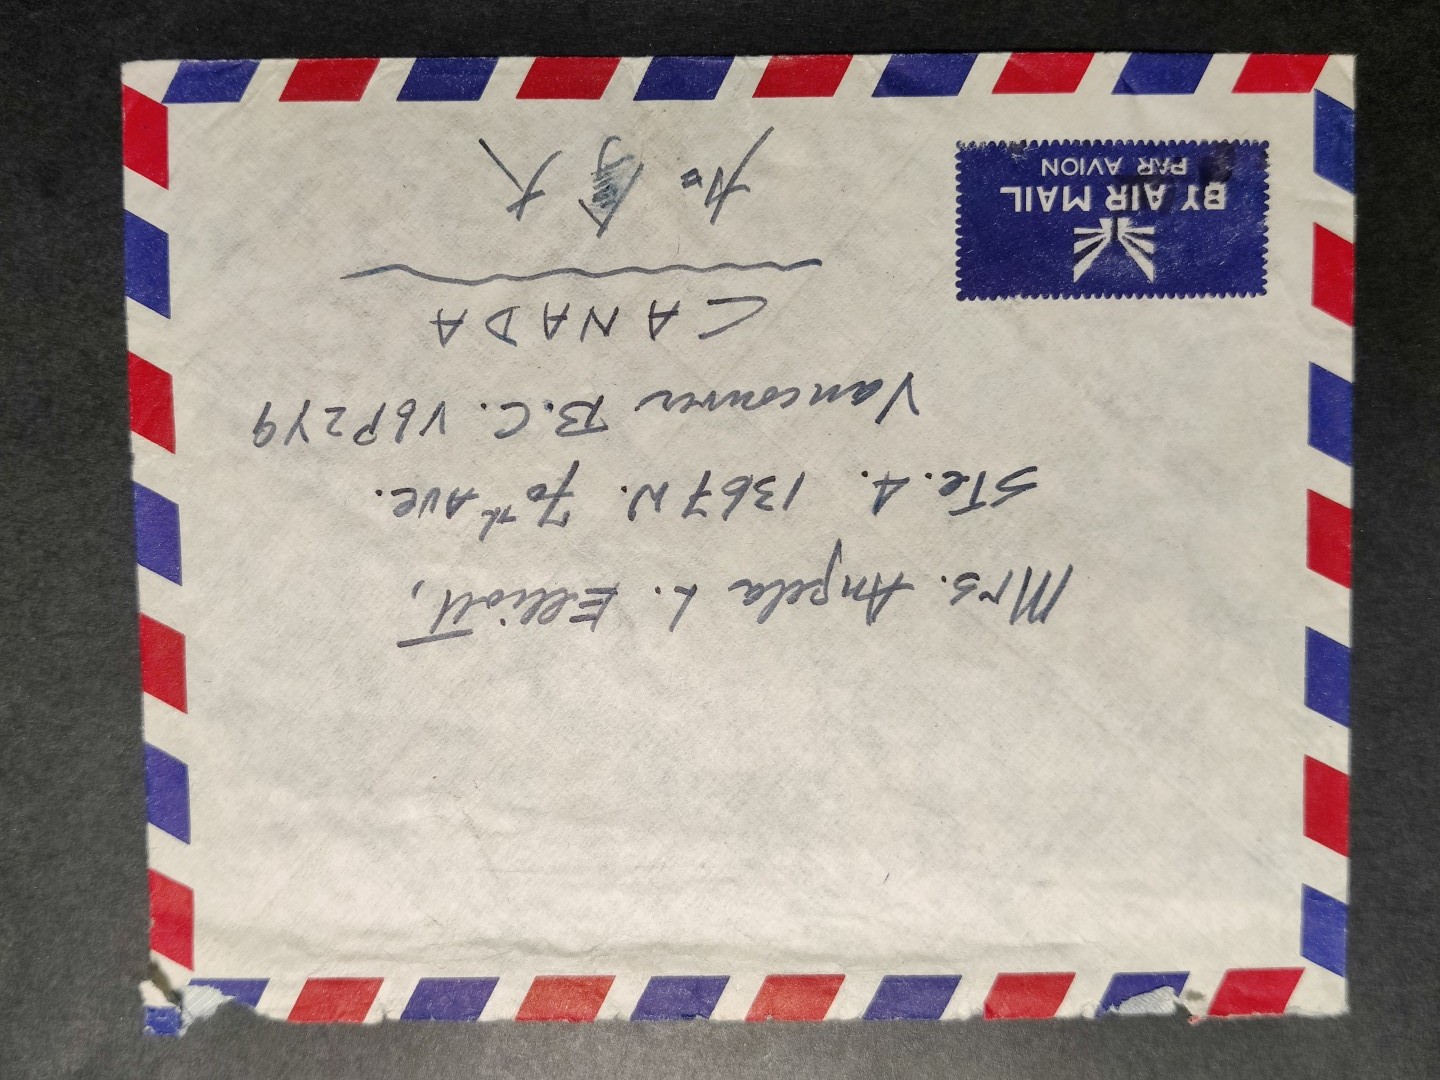 Mrs. Angela L. Elliott,
STe. A. 1367 W. 70th Ave.
Vancouver B.C. V6P2Y9
CANADA
加拿大
BY AIR MAIL
PAR AVION